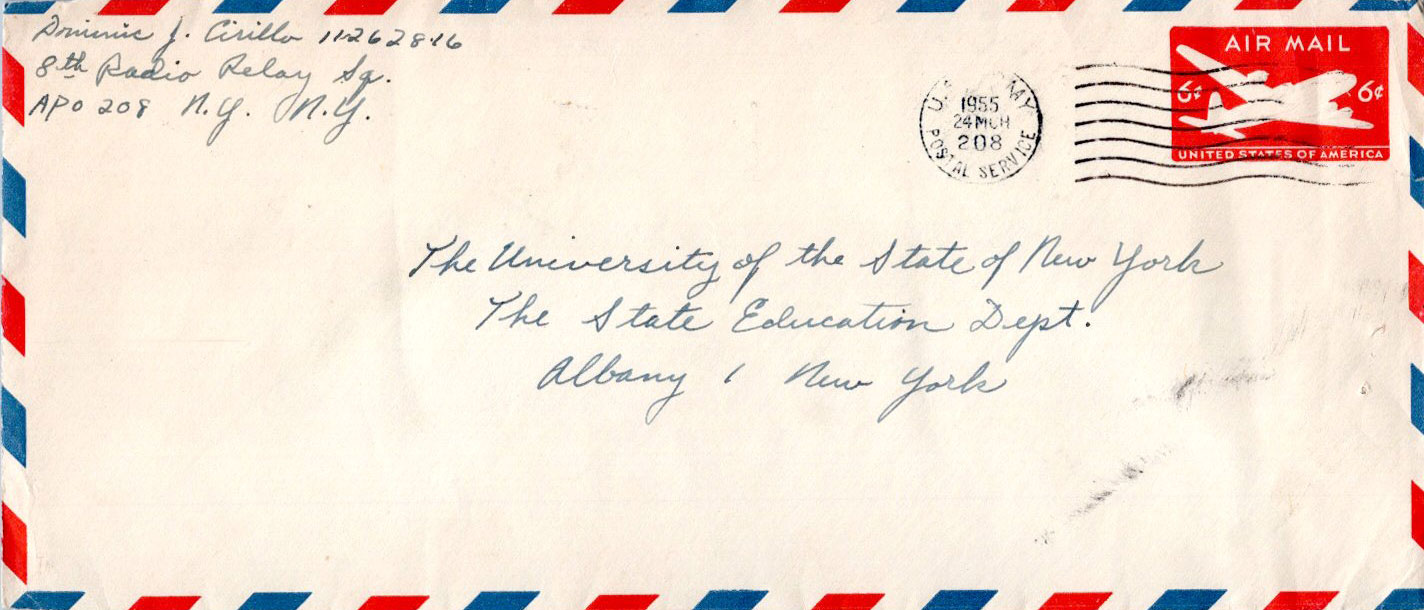 Dominic J. Cirillo 11262816
8th Radio Relay Sq.
APO 208 N.Y. N.Y.
AIR MAIL
6¢ 6¢
UNITED STATES OF AMERICA
1955
24 MCH
208
POSTAL SERVICE
The University of the State of New York
The State Education Dept.
Albany 1 New York